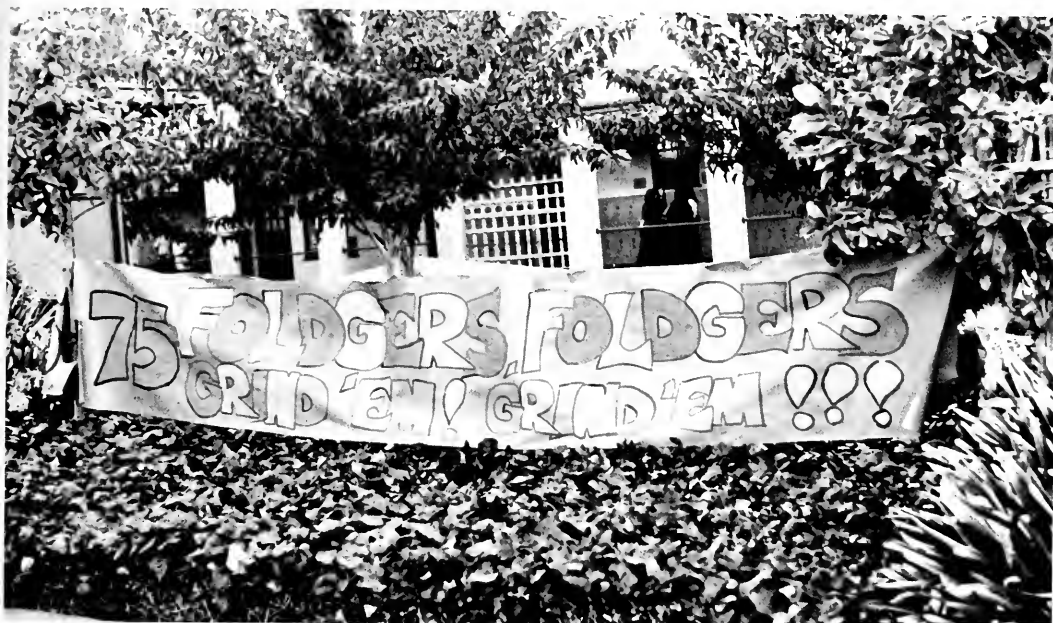 75 FOLDGERS, FOLDGERS
GRIND 'EM! GRIND 'EM !!!